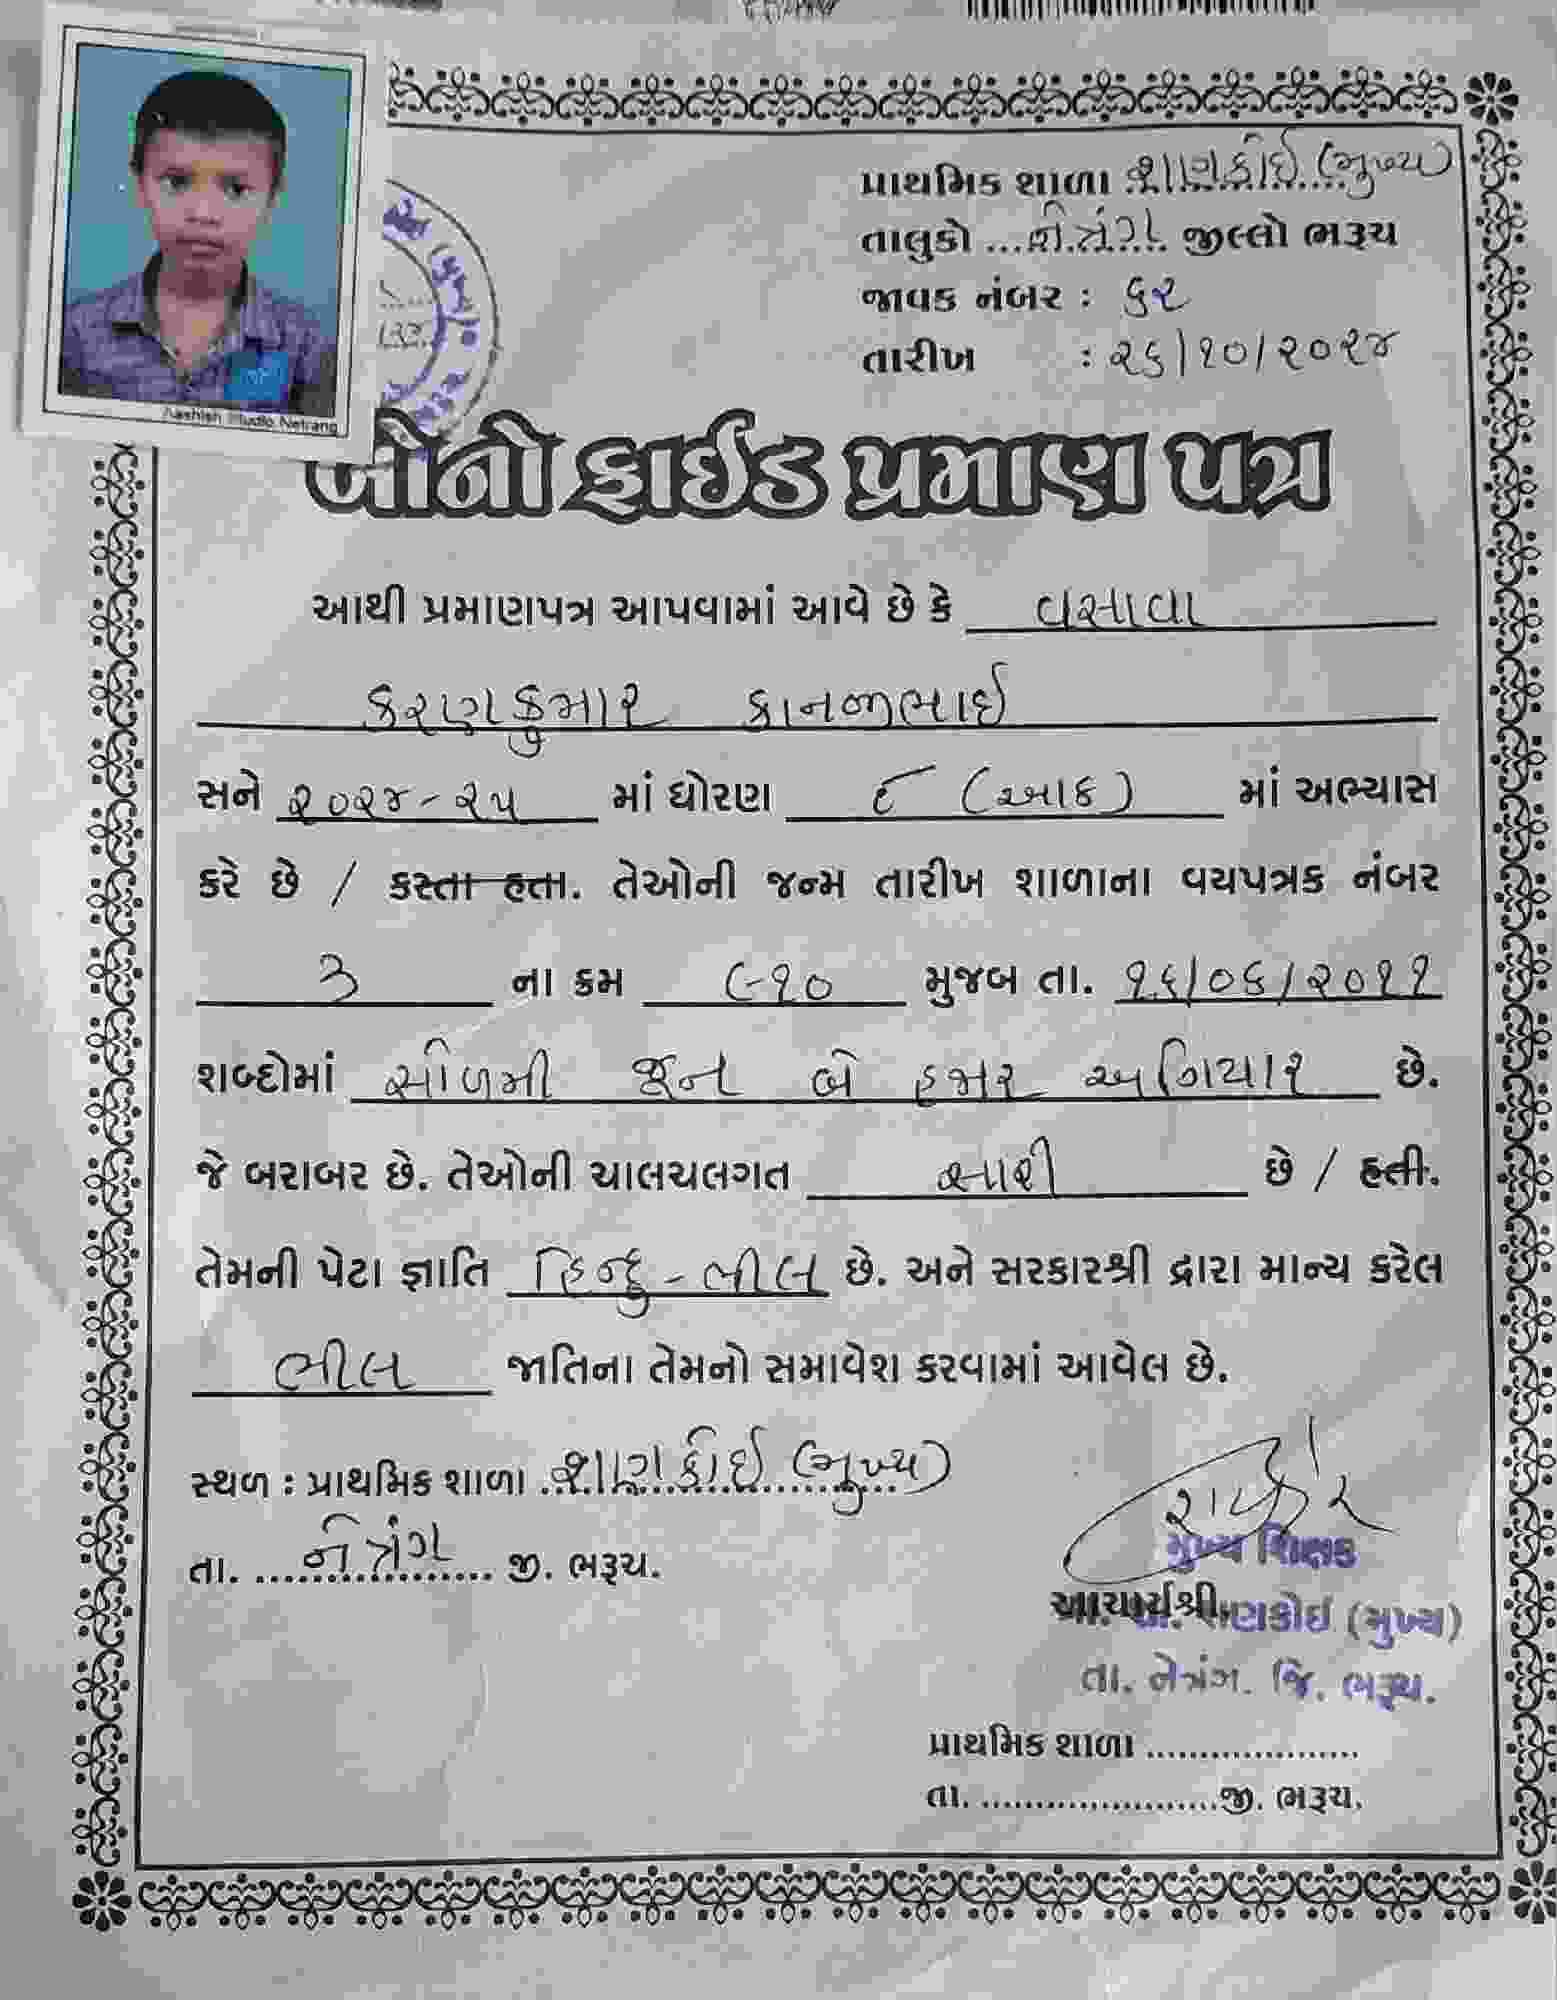 પ્રાથમિક શાળા શાણકોઈ (મુખ્ય)
તાલુકો ...નેત્રંગ.. જીલ્લો ભરૂચ
જાવક નંબર : ૬૨
તારીખ : ૨૬/૧૦/૨૦૨૪
Aashish Studio, Netrang
બોનોફાઈડ પ્રમાણ પત્ર
આથી પ્રમાણપત્ર આપવામાં આવે છે કે વસાવા
કરણકુમાર કાનજીભાઈ
સને ૨૦૨૪-૨૫ માં ધોરણ ૮ (આઠ) માં અભ્યાસ
કરે છે / કરતા હતા. તેઓની જન્મ તારીખ શાળાના વયપત્રક નંબર
૩ ના ક્રમ ૮૧૦ મુજબ તા. ૧૬/૦૬/૨૦૧૧
શબ્દોમાં સોળમી જૂન બે હજાર અગિયાર છે.
જે બરાબર છે. તેઓની ચાલચલગત સારી છે / હતી.
તેમની પેટા જ્ઞાતિ હિન્દુ - ભીલ છે. અને સરકારશ્રી દ્રારા માન્ય કરેલ
ભીલ જાતિના તેમનો સમાવેશ કરવામાં આવેલ છે.
સ્થળ : પ્રાથમિક શાળા શાણકોઈ (મુખ્ય)
તા. નેત્રંગ જી. ભરૂચ.
મુખ્ય શિક્ષક
આચાર્યશ્રી
શાણકોઈ (મુખ્ય)
તા. નેત્રંગ. જિ. ભરૂચ.
પ્રાથમિક શાળા ....................
તા. ......................જી. ભરૂચ.